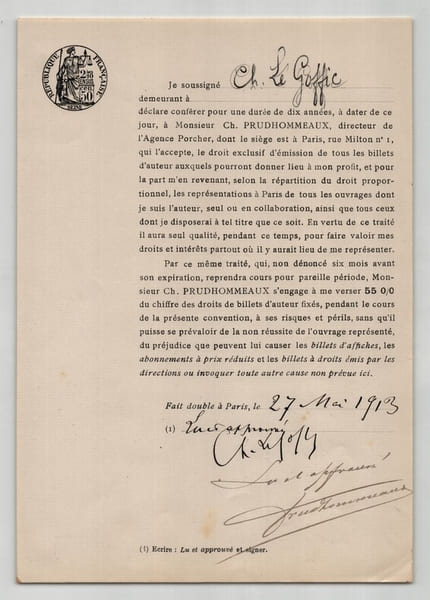 RÉPUBLIQUE FRANÇAISE
Je soussigné Ch. Le Goffic
demeurant à
déclare conférer pour une durée de dix années, à dater de ce
jour, à Monsieur Ch. PRUDHOMMEAUX, directeur de
l'Agence Porcher, dont le siège est à Paris, rue Milton nº 1,
qui l'accepte, le droit exclusif d'émission de tous les billets
d'auteur auxquels pourront donner lieu à mon profit, et pour
la part m'en revenant, selon la répartition du droit propor-
tionnel, les représentations à Paris de tous les ouvrages dont
je suis l'auteur, seul ou en collaboration, ainsi que tous ceux
dont je disposerai à tel titre que ce soit. En vertu de ce traité
il aura seul qualité, pendant ce temps, pour faire valoir mes
droits et intérêts partout où il y aurait lieu de me représenter.
Par ce même traité, qui, non dénoncé six mois avant
son expiration, reprendra cours pour pareille période, Mon-
sieur Ch. PRUDHOMMEAUX s'engage à me verser 55 0/0
du chiffre des droits de billets d'auteur fixés, pendant le cours
de la présente convention, à ses risques et périls, sans qu'il
puisse se prévaloir de la non réussite de l'ouvrage représenté,
du préjudice que peuvent lui causer les billets d'affiches, les
abonnements à prix réduits et les billets à droits émis par les
directions ou invoquer toute autre cause non prévue ici.
Fait double à Paris, le 27 Mai 1913
(1) Lu et approuvé
Ch. Le Goffic
Lu et approuvé
Prudhommeaux
(1) Ecrire : Lu et approuvé et signer.